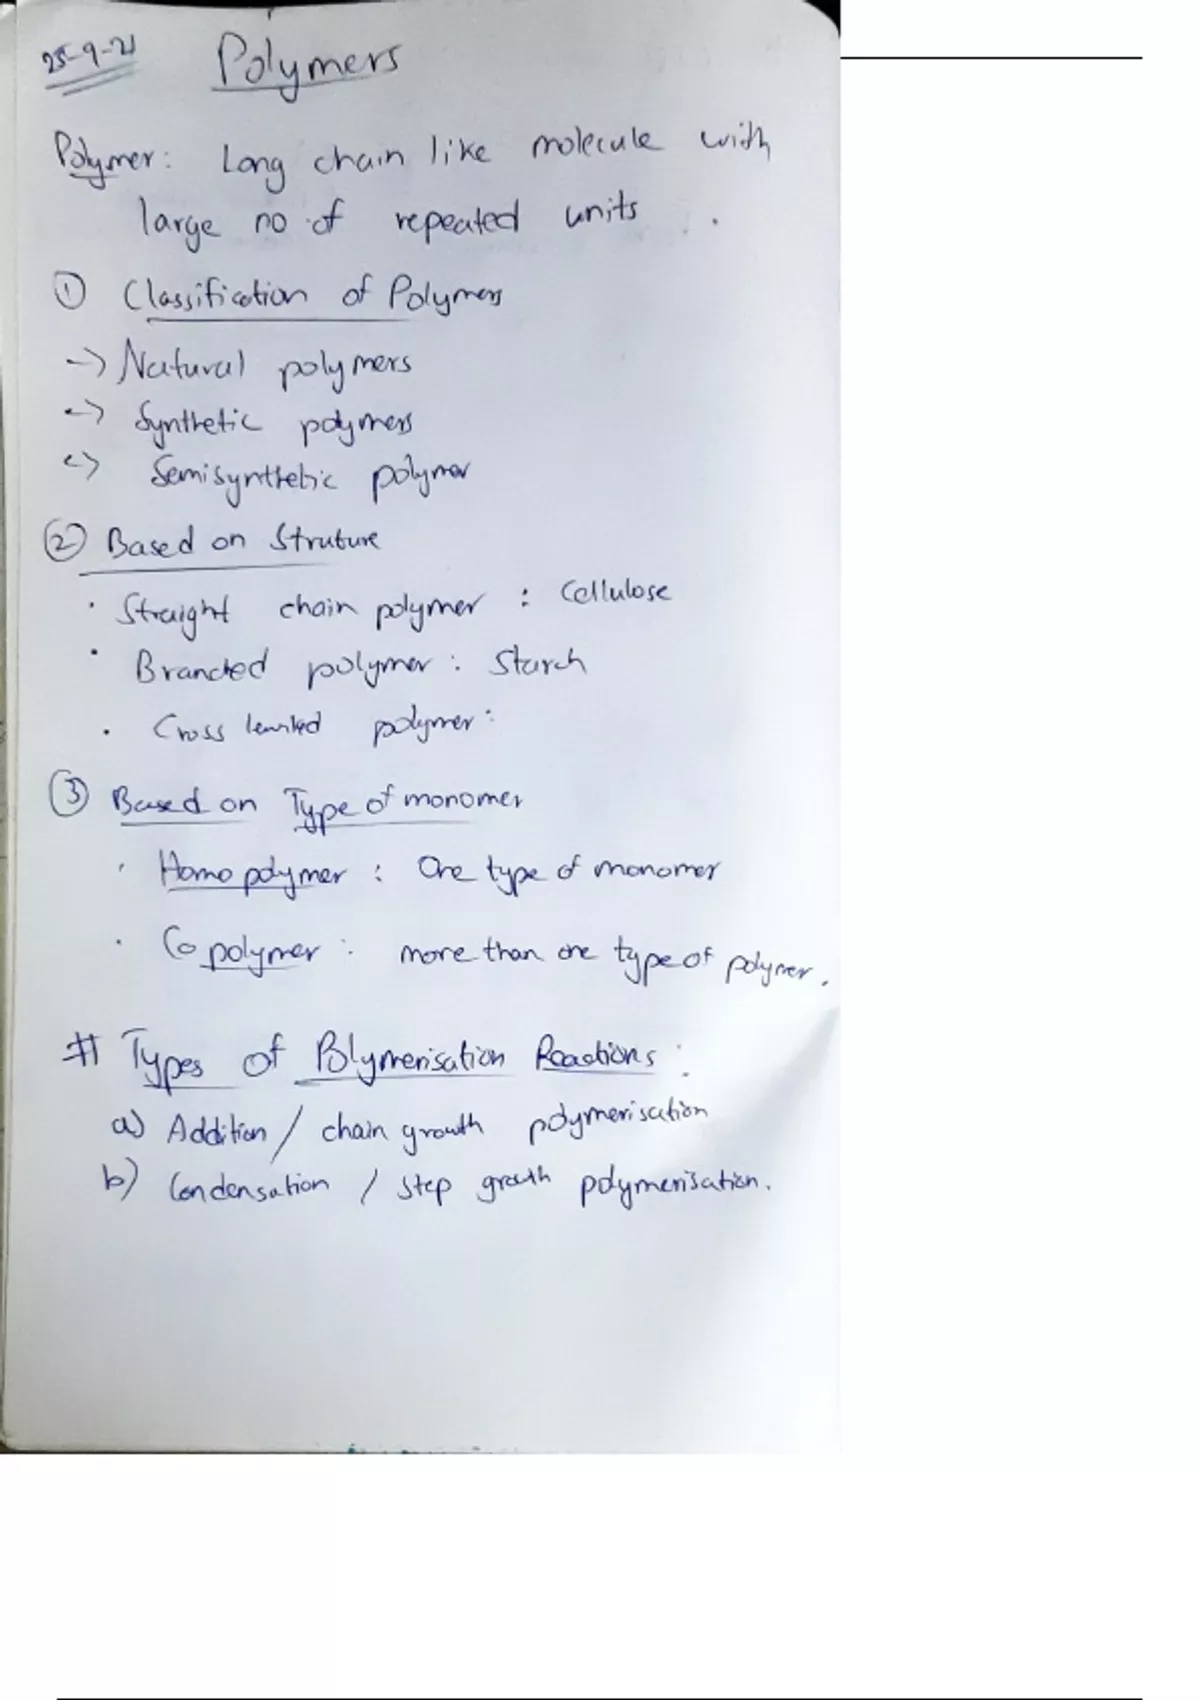 25-9-21 Polymers
Polymer: Long chain like molecule with
large no of repeated units .
① Classification of Polymers
-> Natural polymers
-> Synthetic polymers
-> Semisynthetic polymer
② Based on Struture
· Straight chain polymer : Cellulose
· Branched polymer : Starch
· Cross polymer :
③ Based on Type of monomer
· Homo polymer : One type of monomer
· Co polymer : more than one type of polymer.
# Types of Polymerisation Reactions :
a) Addition / chain growth polymerisation
b) Condensation / step growth polymerisation.